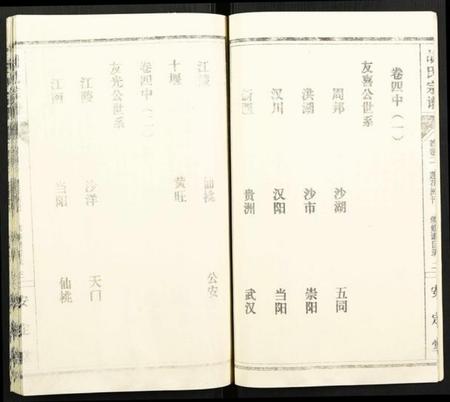 氏宗谱
卷四中（一）
友喜公世系
周邦 沙湖 五同
洪湖 沙市 崇阳
汉川 汉阳 当阳
贵洲 武汉
江陵 仙桃 公安
十堰 黄旺
卷四中（二）
友光公世系
江陵 沙洋 天门
江 当阳 仙桃
安定堂